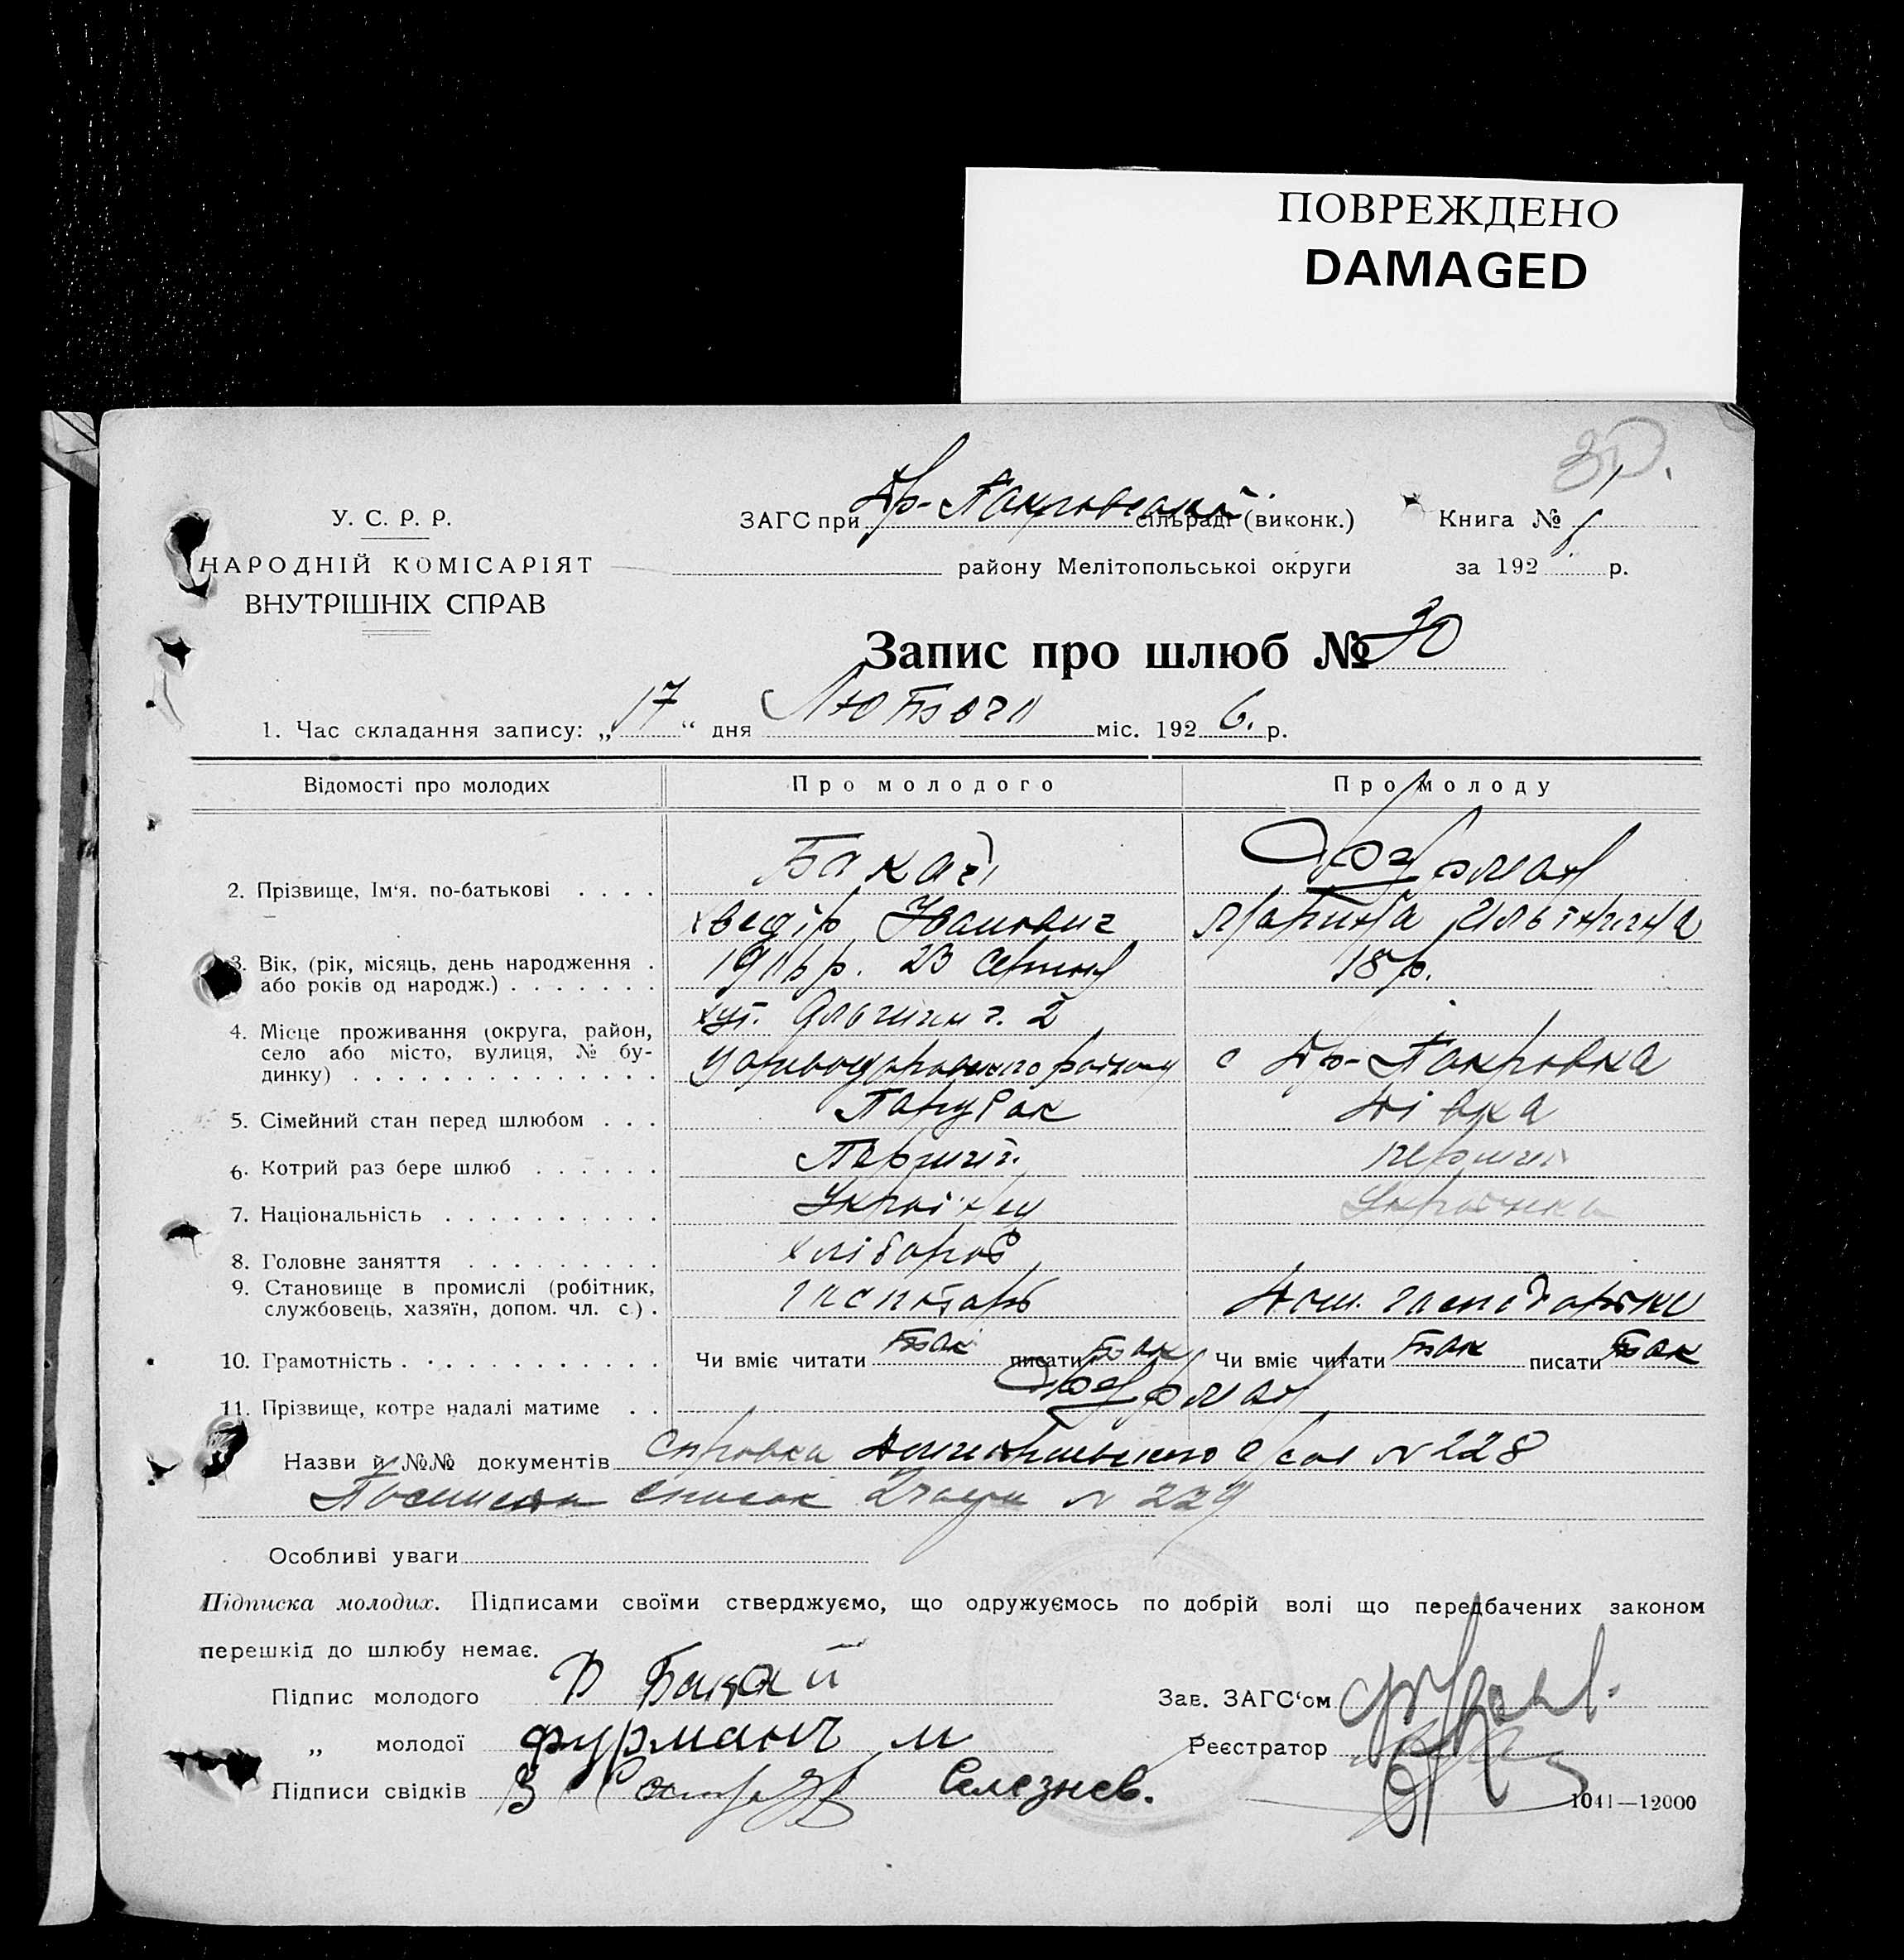 ПОВРЕЖДЕНО
DAMAGED
30.
У. С. Р. Р.
НАРОДНІЙ КОМІСАРІЯТ
ВНУТРІШНІХ СПРАВ
ЗАГС при Др-Покровській сільраді (виконк.)
району Мелітопольської округи
Книга №
за 192 р.
Запис про шлюб № 30
1. Час складання запису: „17“ дня Лютого міс. 1926. р.
Відомості про молодих
Про молодого
Про молоду
2. Прізвище, Ім'я. по-батькові . . . .
Бакай
Фурман
Хведір Іванович
Марина Ильінична
3. Вік, (рік, місяць, день народження .
або років од народж.) . . . . . . .
р. 23 Серпня
18 р.
4. Місце проживання (округа, район,
село або місто, вулиця, № бу-
динку) . . . . . . . . . . . . . .
хут. 2
району
с Др-Покровка
5. Сімейний стан перед шлюбом . . .
Парубок
Дівка
6. Котрий раз бере шлюб . . . . . .
Перший
перший
7. Національність . . . . . . . . . .
Українец
Українка
8. Головне заняття . . . . . . . . .
хлібороб
9. Становище в промислі (робітник,
службовець, хазяїн, допом. чл. с.) .
господарь
Дом. господарька
10. Грамотність . . . . . . . . . . . .
Чи вміє читати так писати так
Чи вміє читати так писати так
11. Прізвище, котре надалі матиме . .
Фурман
Назви й №№ документів Справка N 228
список N 229
Особливі уваги
Підписка молодих. Підписами своїми стверджуємо, що одружуємось по добрій волі що передбачених законом
перешкід до шлюбу немає.
Підпис молодого Бакай
Зав. ЗАГС'ом
„ молодої фурманъ м
Реєстратор
Підписи свідків Селезнев.
1041—12000